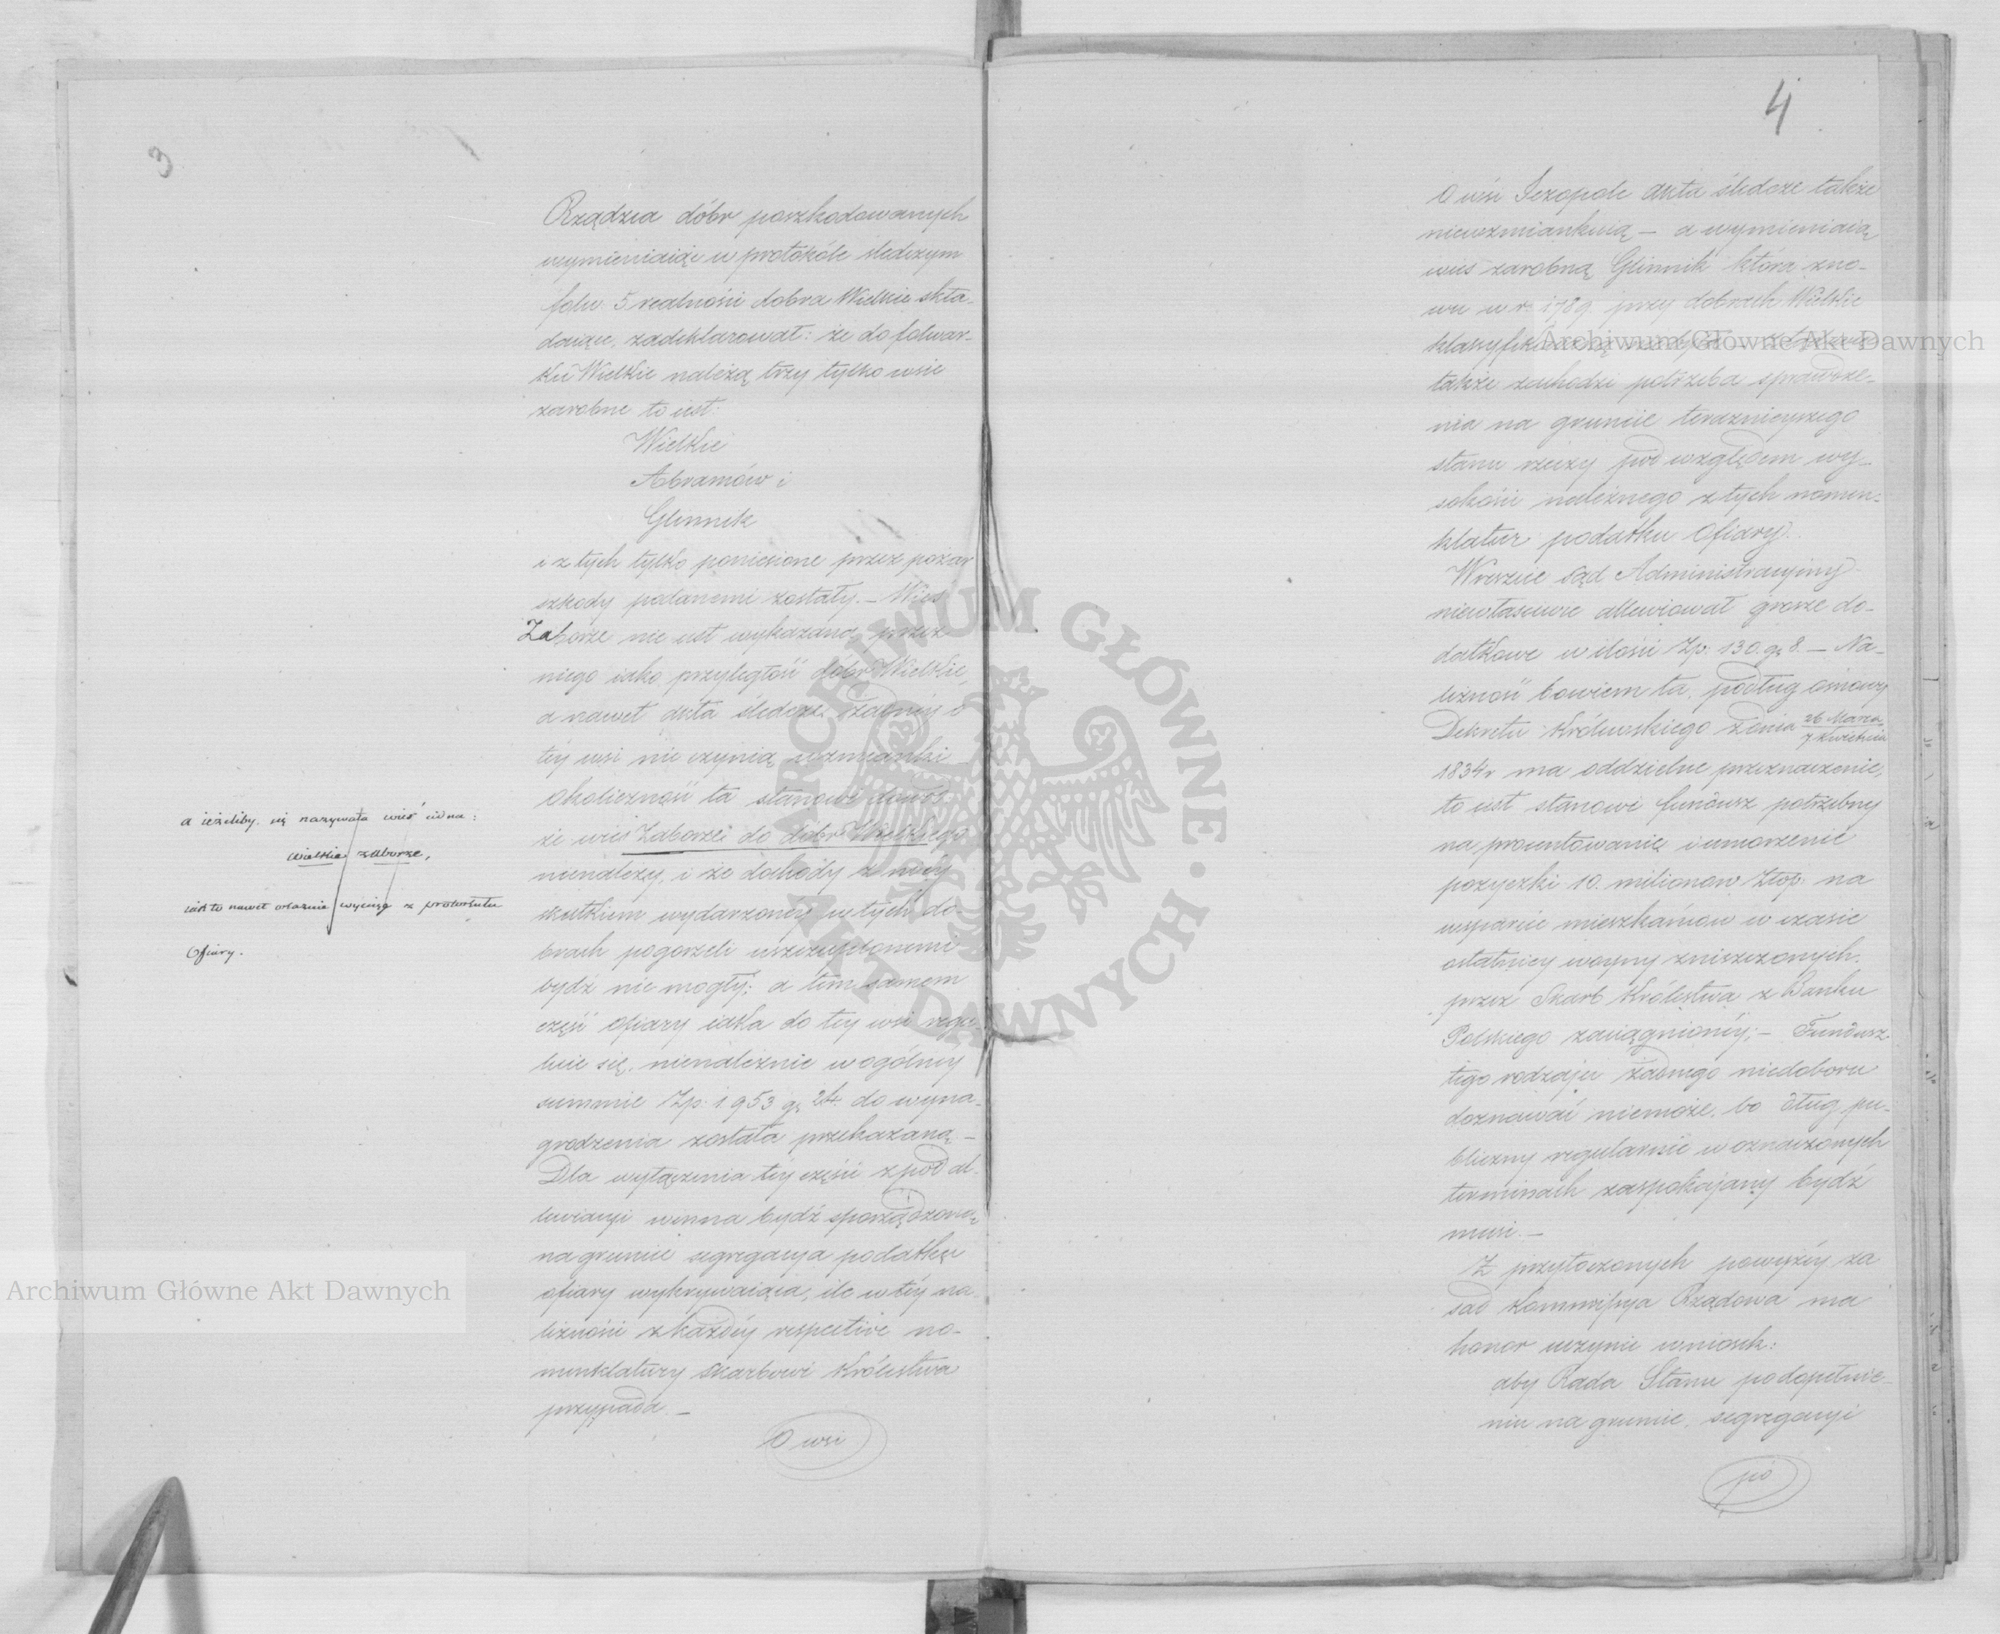 3
Rządzca dóbr poszkodowanych
wymieniaiąc w protokóle śledczym
folw. 5 realności dobra Wielkie skła-
daiące, zadeklarował: że do folwar-
ku Wielkie należą trzy tylko wsie
zarobne to iest:
Wielkie
Abramów i
Glinnik
i z tych tylko poniesione przez pożar
szkody podanemi zostały. — Wieś
Zaborze nie iest wykazaną przez
niego iako przyległość dóbr Wielkie,
a nawet akta śledcze żadnéy o
téy wsi nie czynią wzmianki
Okoliczność ta stanowi dowód
że wieś Zaborze do dóbr Wielkiego
nienależy, i że dochody z niéy
skutkiem wydarzonéy w tych do-
brach pogorzeli uszczuplonemi
bydź nie mogły; a tém samem
część ofiary iaka do téy wsi regu-
luie się, nienależnie w ogólnéy
summie Zp: 1953 gr 24. do wyna-
grodzenia została przekazaną —
Dla wyłączenia téy części z pod al-
lewiacyi winna bydź sporządzoną
na gruncie segregacya podatku
ofiary wykrywaiąca, ile w téy na-
leżności z każdéy respective no-
menklatury Skarbowi Królestwa
przypada. —
O wsi
a ieżeliby się nazywała wieś iedna:
Wielkie Zaborze,
iak to nawet okaznie wyciąg z protokułu
Ofiary.
4
O wsi Jezopole akta śledcze także
niewzmiankuią — a wymieniaią
wieś zarobną Glinnik która zno-
wu w r. 1789. przy dobrach Wielkie
także zachodzi potrzeba sprawdze-
nia na gruncie teraznieyszego
stanu rzeczy pod względem wy-
sokości należnego z tych nomen-
klatur podatku Ofiary.
Wreszcie sąd Administracyiny
niewłasciwie allewiował grosze do-
datkowe w ilości Zp: 130. gr 8. — Na-
leżność bowiem ta, podług osnowy
Dekretu Królewskiego z dnia 26 Marca/7 Kwietnia
1834 r ma oddzielne przeznaczenie,
to iest stanowi fundusz potrzebny
na procentowanie i umorzenie
pożyczki 10. milionow Złop. na
wsparcie mieszkańcow w czasie
ostatniey woyny zniszczonych.
przez Skarb Królestwa z Banku
Polskiego zaciągnionéy; — Fundusz
tego rodzaju żadnego niedoboru
doznawać niemoże, bo dług pu-
bliczny regularnie w oznaczonych
terminach zaspokajany bydź
musi. —
Z przytoczonych powyżéy za
sad Kommissya Rządowa ma
honor uczynić wniosek:
aby Rada Stanu po dopełnie-
niu na gruncie, segregacyi
po
ARCHIWUM GŁÓWNE AKT DAWNYCH
Archiwum Główne Akt Dawnych
Archiwum Główne Akt Dawnych